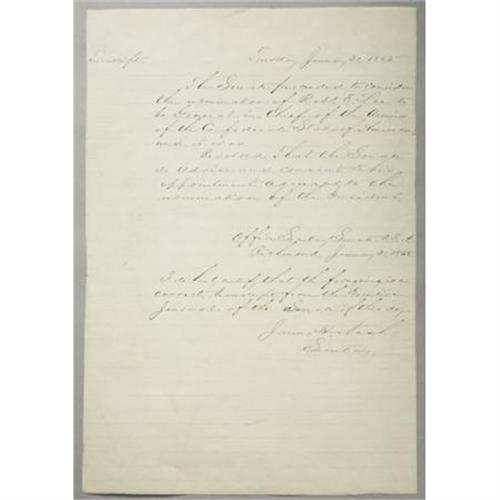 Transcript. Tuesday January 31, 1865
The Senate proceeded to consider
the nomination of Robt E. Lee to
be General in Chief of the Armies
of the Confederate States of America
and, it was
Resolved, That the Senate
do advise and consent to his
appointment agreeably to the
nomination of the President.
Office Secretary Senate C.S.A.
Richmond, January 31, 1865
I do hereby certify that the foregoing is a
correct transcript from the Executive
Journal of the Senate of this day.
James H. Nash
Secretary